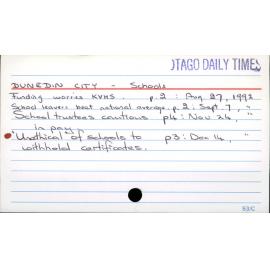 OTAGO DAILY TIMES
DUNEDIN CITY - Schools
Funding worries KVHS. p.2: Aug 27, 1992
School leavers beat national average. p.2: Sept 7, "
School trustees cautious p4: Nov 24, "
in pay
"Unethical of schools to p3: Dec 14, "
withhold certificates.
53/C